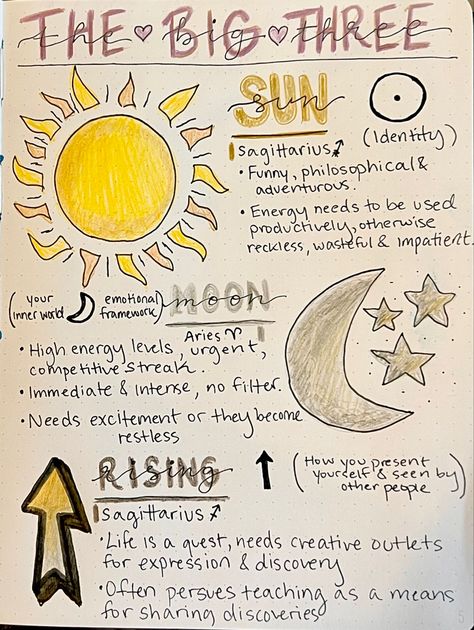 THE ♡ BIG ♡ THREE
the big three
SUN
sun
(Identity)
Sagittarius ♐
• Funny, philosophical &
adventurous.
• Energy needs to be used
productively, otherwise
reckless, wasteful & impatient.
(your inner world
emotional framework)
MOON
moon
Aries ♈
• High energy levels, urgent,
competitive streak.
• Immediate & intense, no filter.
• Needs excitement or they become
restless
RISING
rising
(How you present
yourself & seen by
other people)
Sagittarius ♐
• Life is a quest, needs creative outlets
for expression & discovery
• Often persues teaching as a means
for sharing discoveries